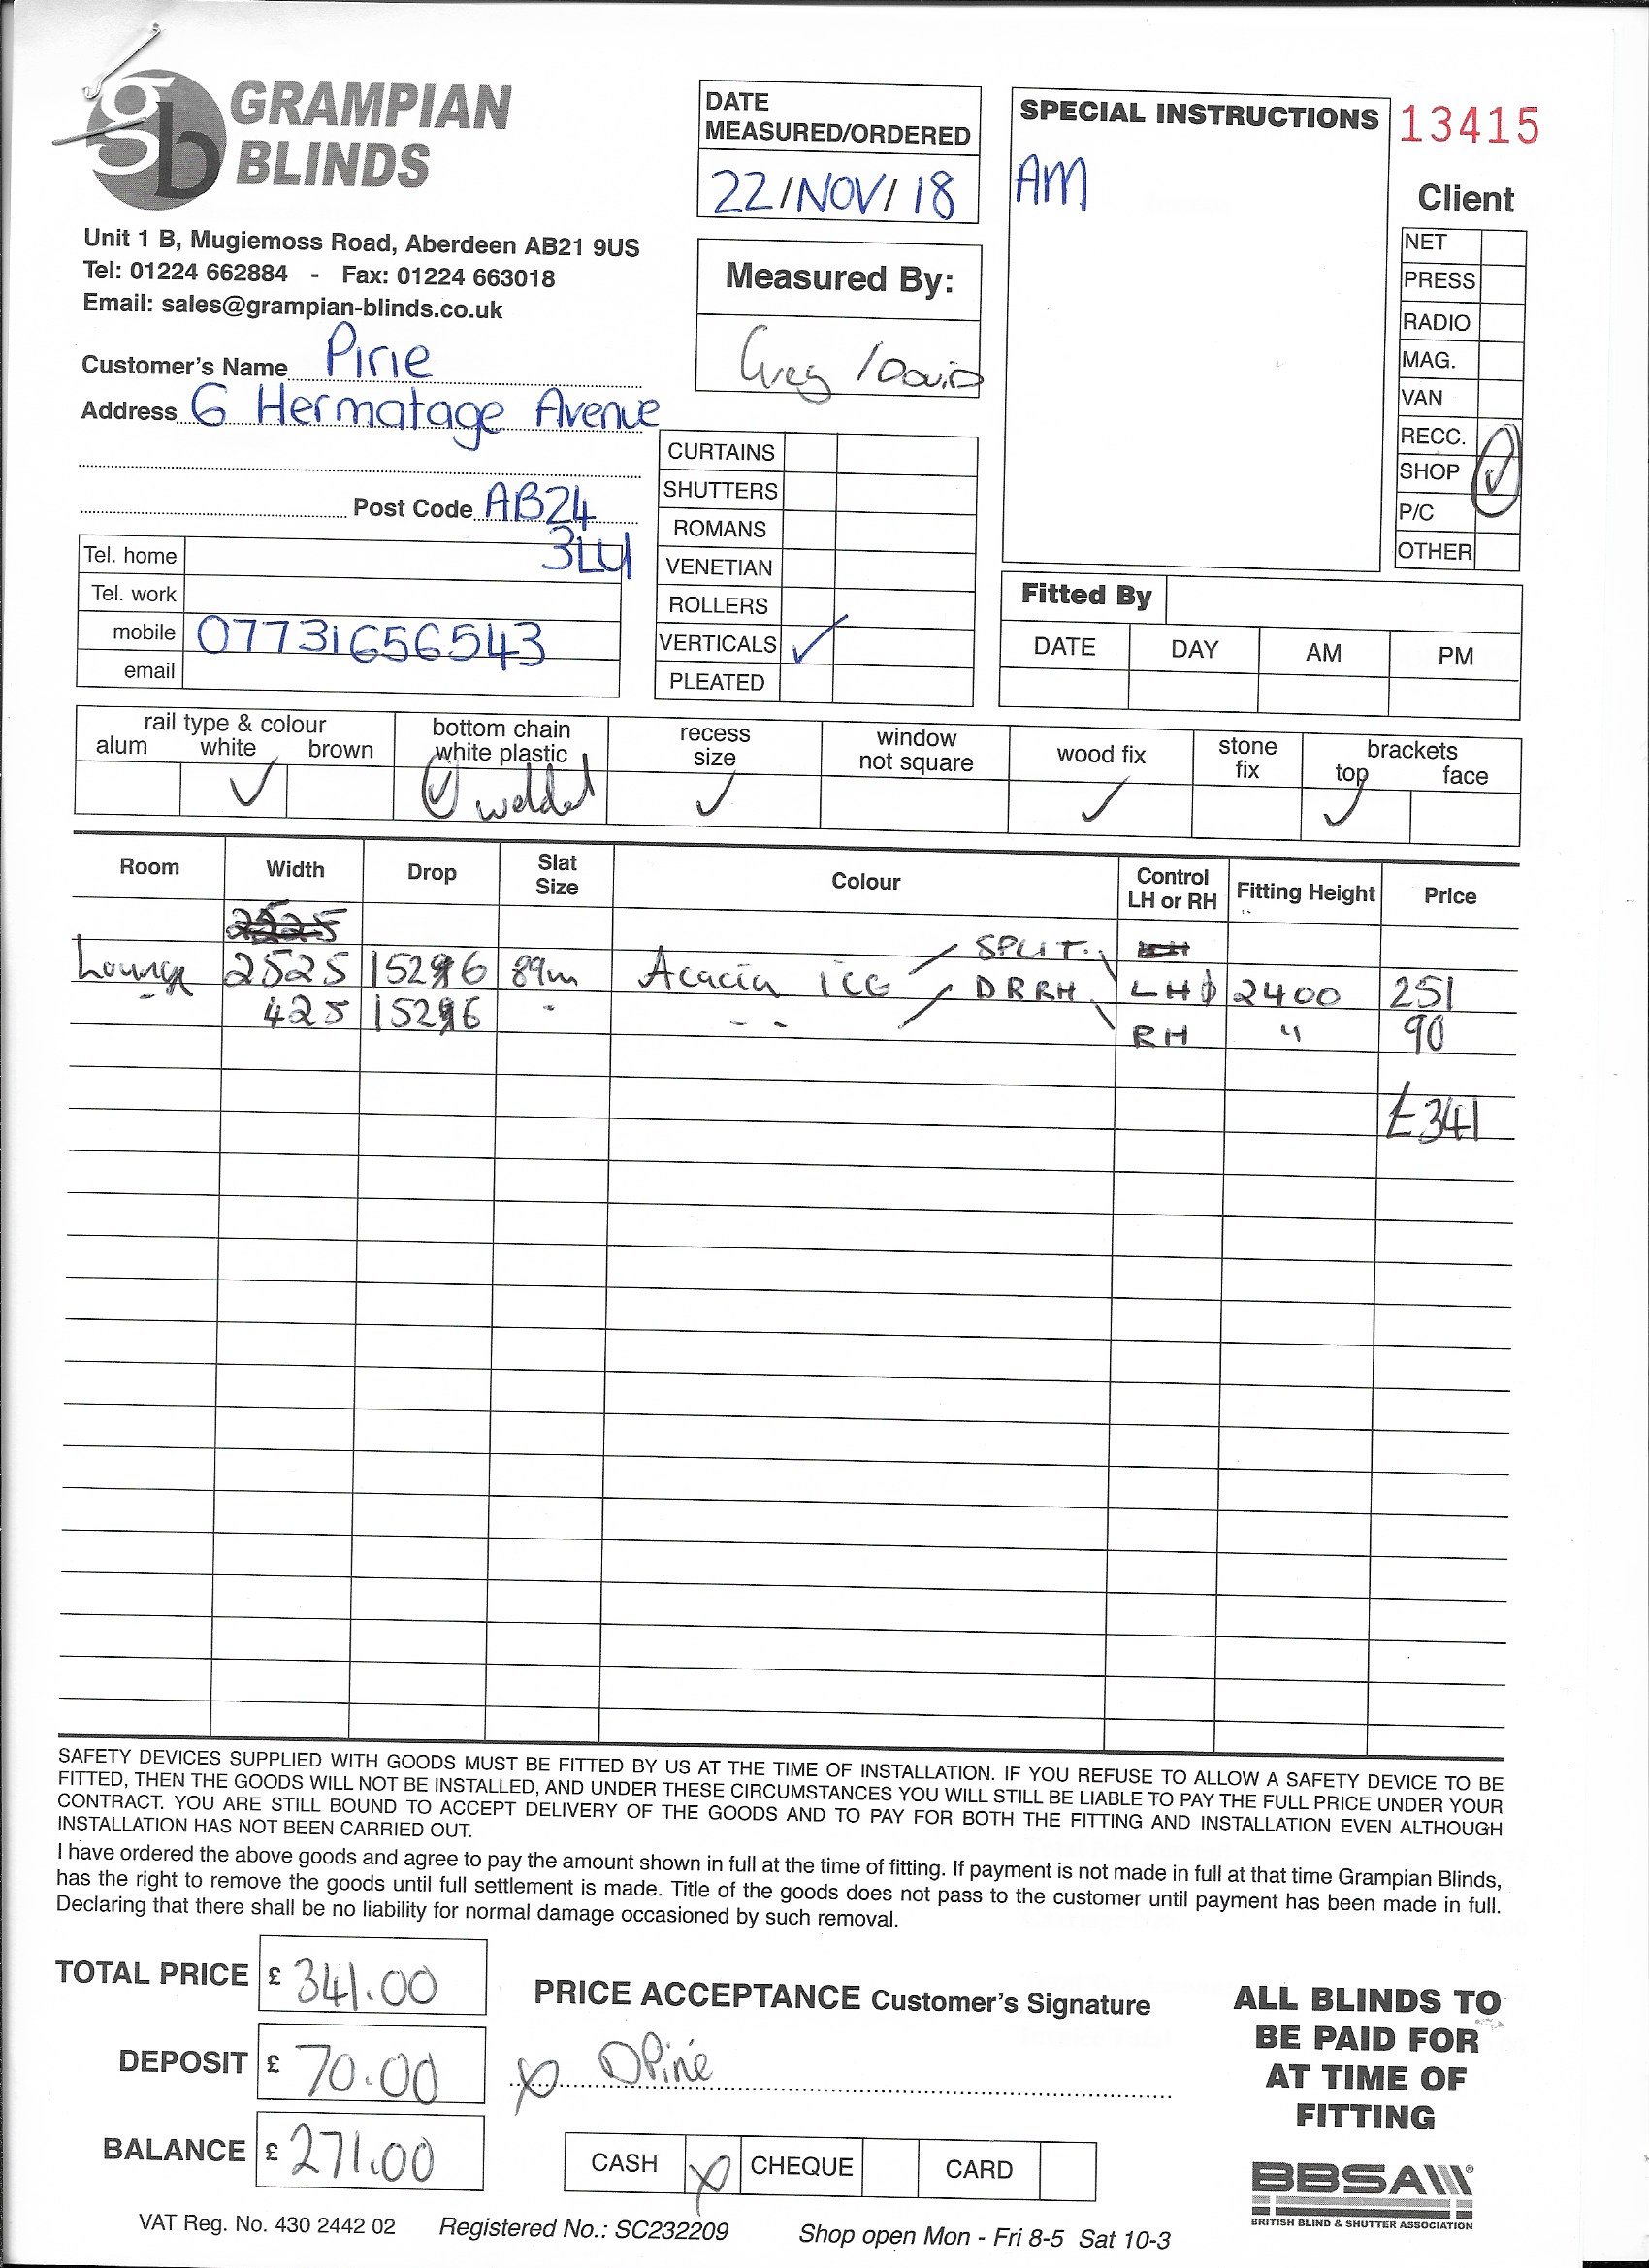 GRAMPIAN
BLINDS
Unit 1 B, Mugiemoss Road, Aberdeen AB21 9US
Tel: 01224 662884 - Fax: 01224 663018
Email: sales@grampian-blinds.co.uk
Customer's Name Pirie
Address 6 Hermatage Avenue
Post Code AB24
3LU
Tel. home
Tel. work
mobile 07731656543
email
DATE
MEASURED/ORDERED
22/NOV/18
Measured By:
Greg / David
CURTAINS
SHUTTERS
ROMANS
VENETIAN
ROLLERS
VERTICALS ✓
PLEATED
SPECIAL INSTRUCTIONS
AM
13415
Client
NET
PRESS
RADIO
MAG.
VAN
RECC.
SHOP ✓
P/C
OTHER
Fitted By
DATE DAY AM PM
rail type & colour
alum white brown
✓
bottom chain
white plastic
✓ welded
recess
size
✓
window
not square
wood fix
✓
stone
fix
brackets
top face
✓
Room Width Drop Slat Size Colour Control LH or RH Fitting Height Price
2525
Lounge 2525 1526 89m Acacia ice SPLIT. LH 2400 251
425 1526 - - - DRRH RH " 90
£341
SAFETY DEVICES SUPPLIED WITH GOODS MUST BE FITTED BY US AT THE TIME OF INSTALLATION. IF YOU REFUSE TO ALLOW A SAFETY DEVICE TO BE
FITTED, THEN THE GOODS WILL NOT BE INSTALLED, AND UNDER THESE CIRCUMSTANCES YOU WILL STILL BE LIABLE TO PAY THE FULL PRICE UNDER YOUR
CONTRACT. YOU ARE STILL BOUND TO ACCEPT DELIVERY OF THE GOODS AND TO PAY FOR BOTH THE FITTING AND INSTALLATION EVEN ALTHOUGH
INSTALLATION HAS NOT BEEN CARRIED OUT.
I have ordered the above goods and agree to pay the amount shown in full at the time of fitting. If payment is not made in full at that time Grampian Blinds,
has the right to remove the goods until full settlement is made. Title of the goods does not pass to the customer until payment has been made in full.
Declaring that there shall be no liability for normal damage occasioned by such removal.
TOTAL PRICE £ 341.00
DEPOSIT £ 70.00
BALANCE £ 271.00
PRICE ACCEPTANCE Customer's Signature
x DPirie
CASH x CHEQUE CARD
ALL BLINDS TO
BE PAID FOR
AT TIME OF
FITTING
BBSA
BRITISH BLIND & SHUTTER ASSOCIATION
VAT Reg. No. 430 2442 02 Registered No.: SC232209 Shop open Mon - Fri 8-5 Sat 10-3